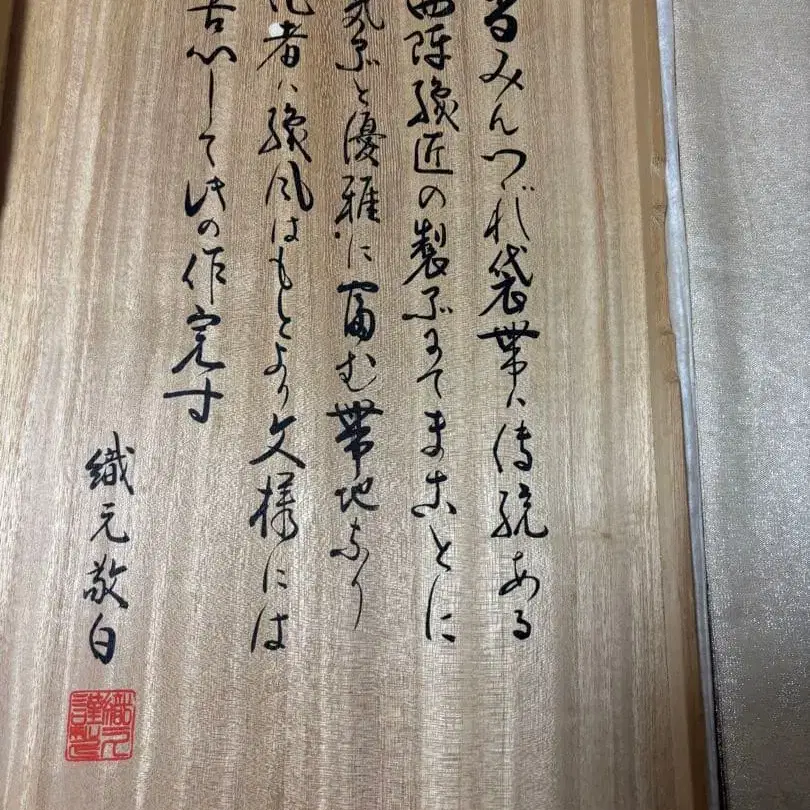 みんつづれ袋帯ハ傳統ある
西陣織匠の製品にてまことに
気品と優雅に富む帯地なり
者ハ織風はもとより文様には
苦心して此の作完す
織元敬白
織元
謹製